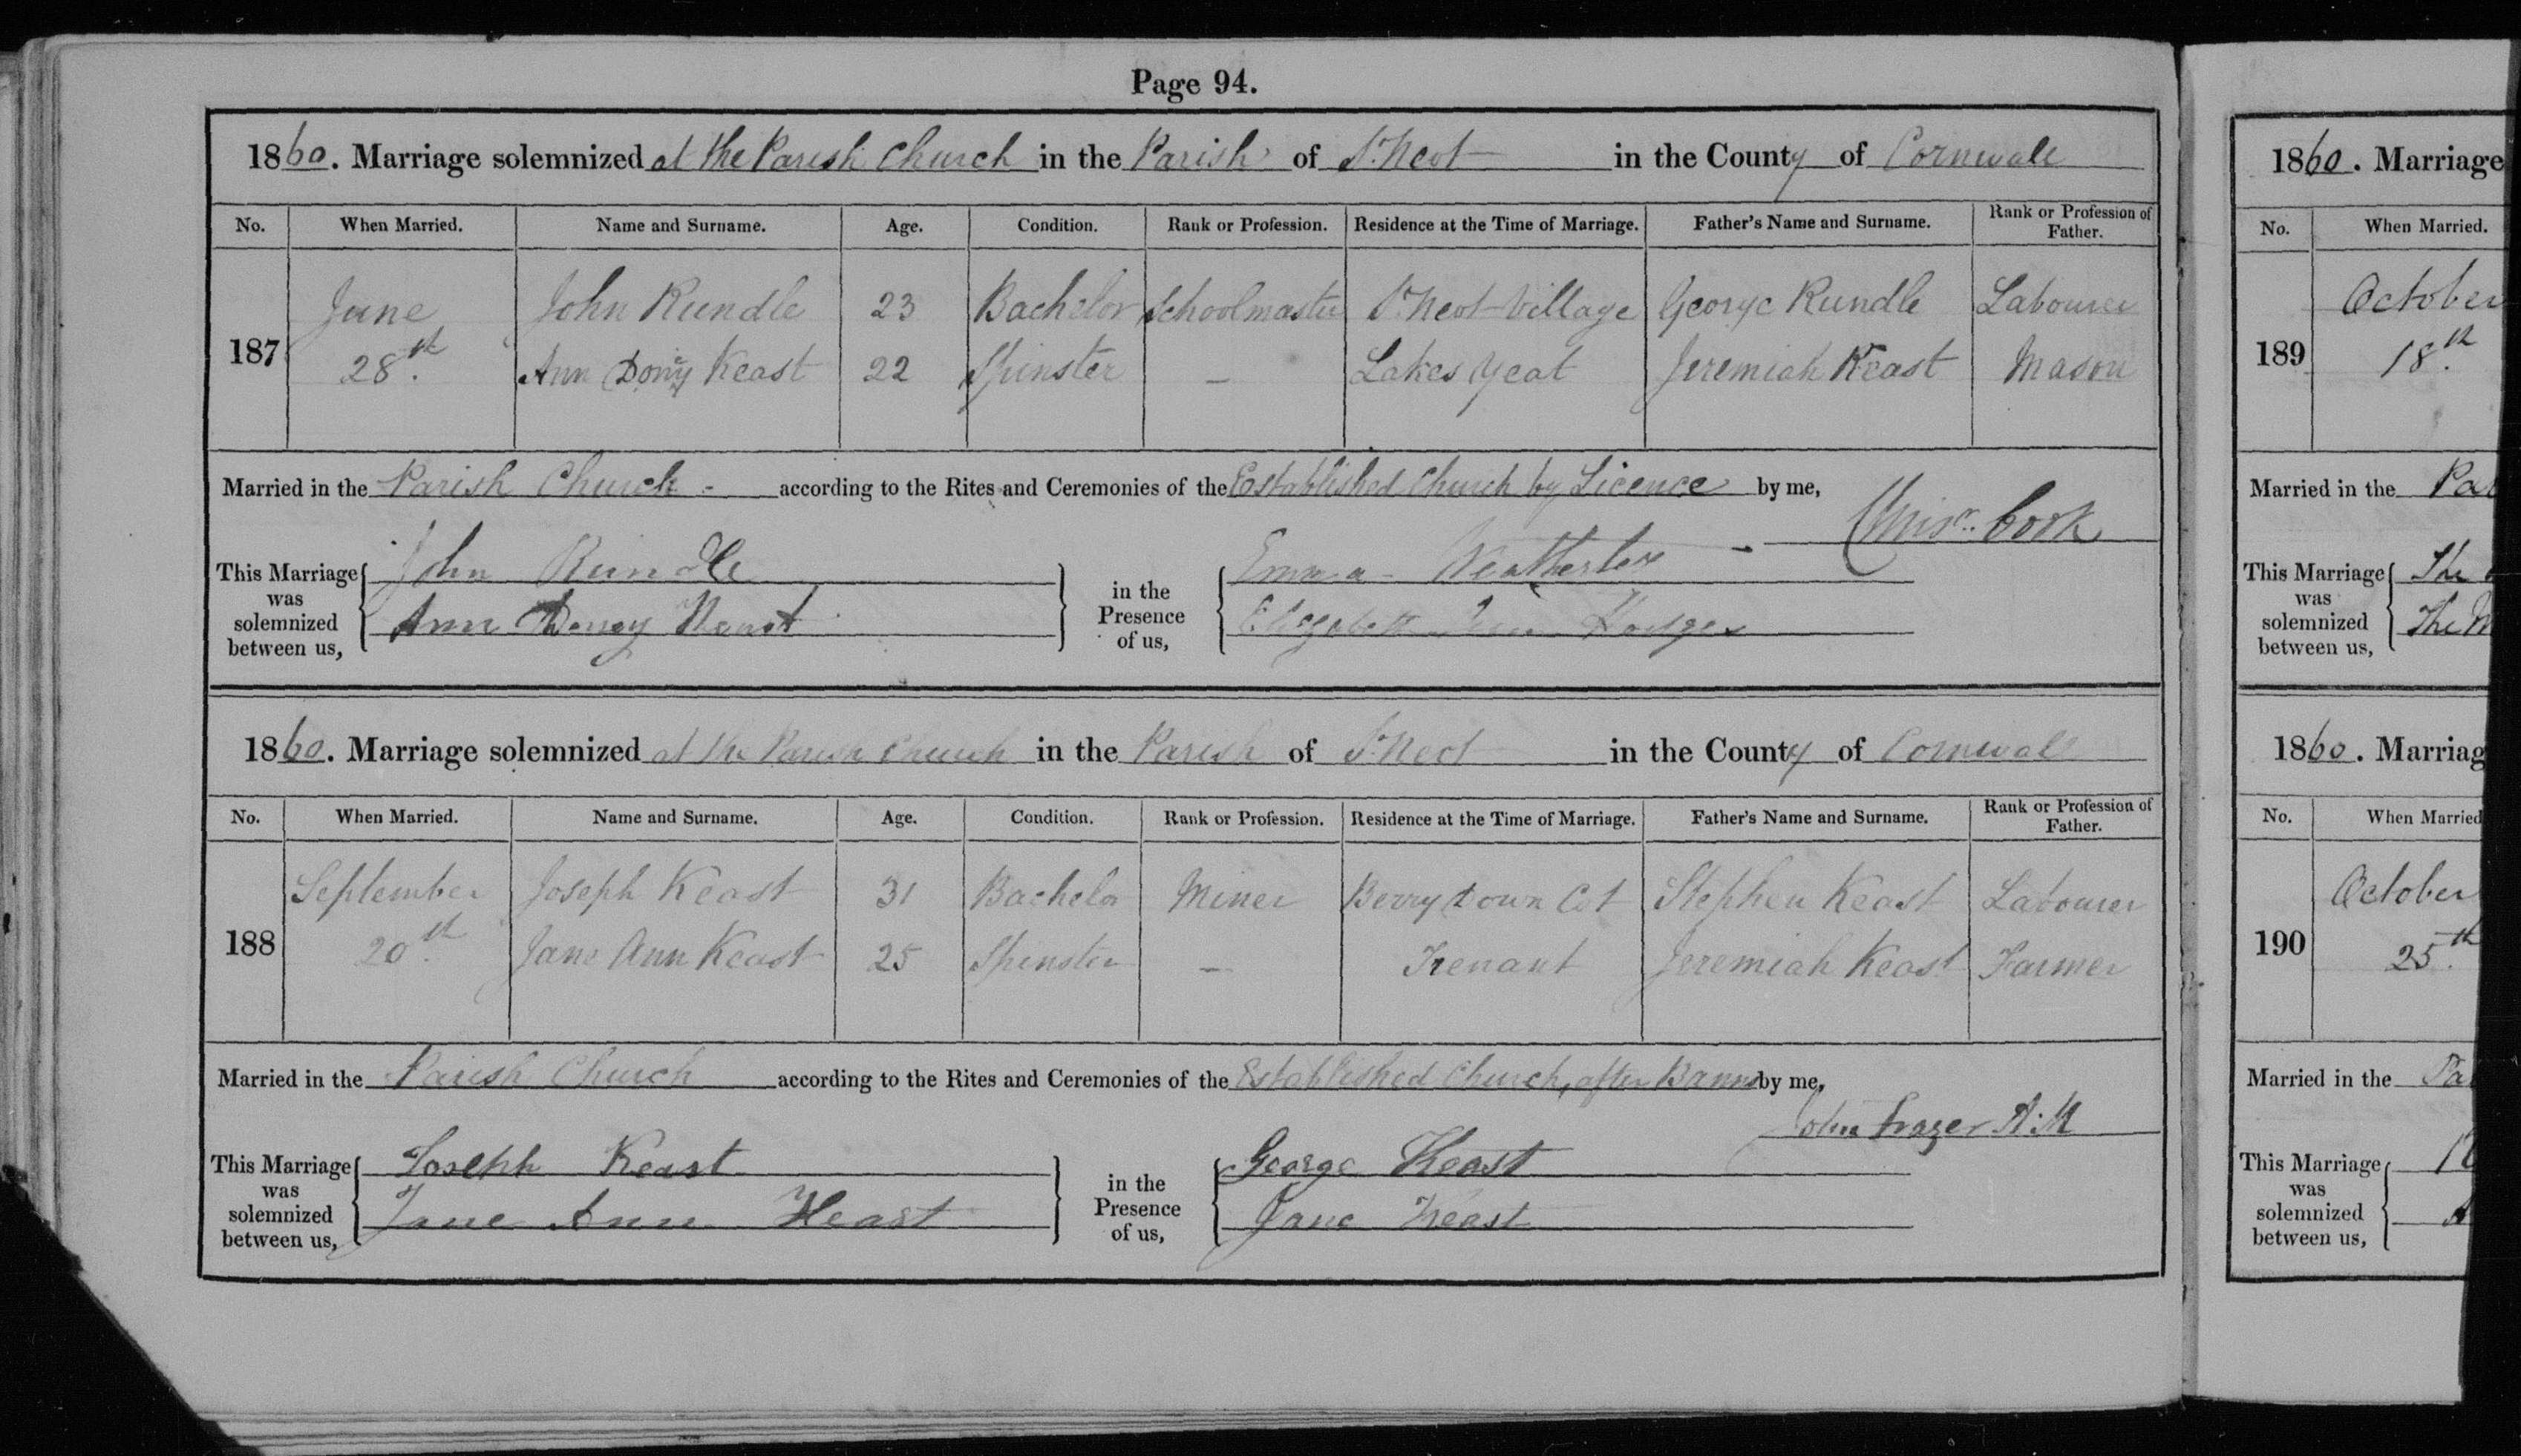 Page 94.
1860. Marriage solemnized at the Parish Church in the Parish of St. Neot in the County of Cornwall
No. When Married. Name and Surname. Age. Condition. Rank or Profession. Residence at the Time of Marriage. Father's Name and Surname. Rank or Profession of Father.
187 June John Rundle 23 Bachelor Schoolmaster St. Neot Village George Rundle Labourer
28th. Ann Doney Keast 22 Spinster – Lakes Yeat Jeremiah Keast Mason
Married in the Parish Church - according to the Rites and Ceremonies of the Established Church by Licence by me,
Cook
This Marriage was solemnized between us, John Rundle
Ann Doney Keast
in the Presence of us, Emma
Elizabeth Ann Hodges
1860. Marriage solemnized at the Parish Church in the Parish of St. Neot in the County of Cornwall
No. When Married. Name and Surname. Age. Condition. Rank or Profession. Residence at the Time of Marriage. Father's Name and Surname. Rank or Profession of Father.
188 September Joseph Keast 31 Bachelor Miner Berrydown Cot Stephen Keast Labourer
20th. Jane Ann Keast 25 Spinster – Trenant Jeremiah Keast Farmer
Married in the Parish Church according to the Rites and Ceremonies of the Established Church, after Banns by me,
John Frazer A.M
This Marriage was solemnized between us, Joseph Keast
Jane Ann Keast
in the Presence of us, George Keast
Jane Keast
1860. Marriage
No. When Married.
189 October
18th.
Married in the Pa
This Marriage was solemnized between us, The
The M
1860. Marriag
No. When Married
190 October
25th.
Married in the Pa
This Marriage was solemnized between us,